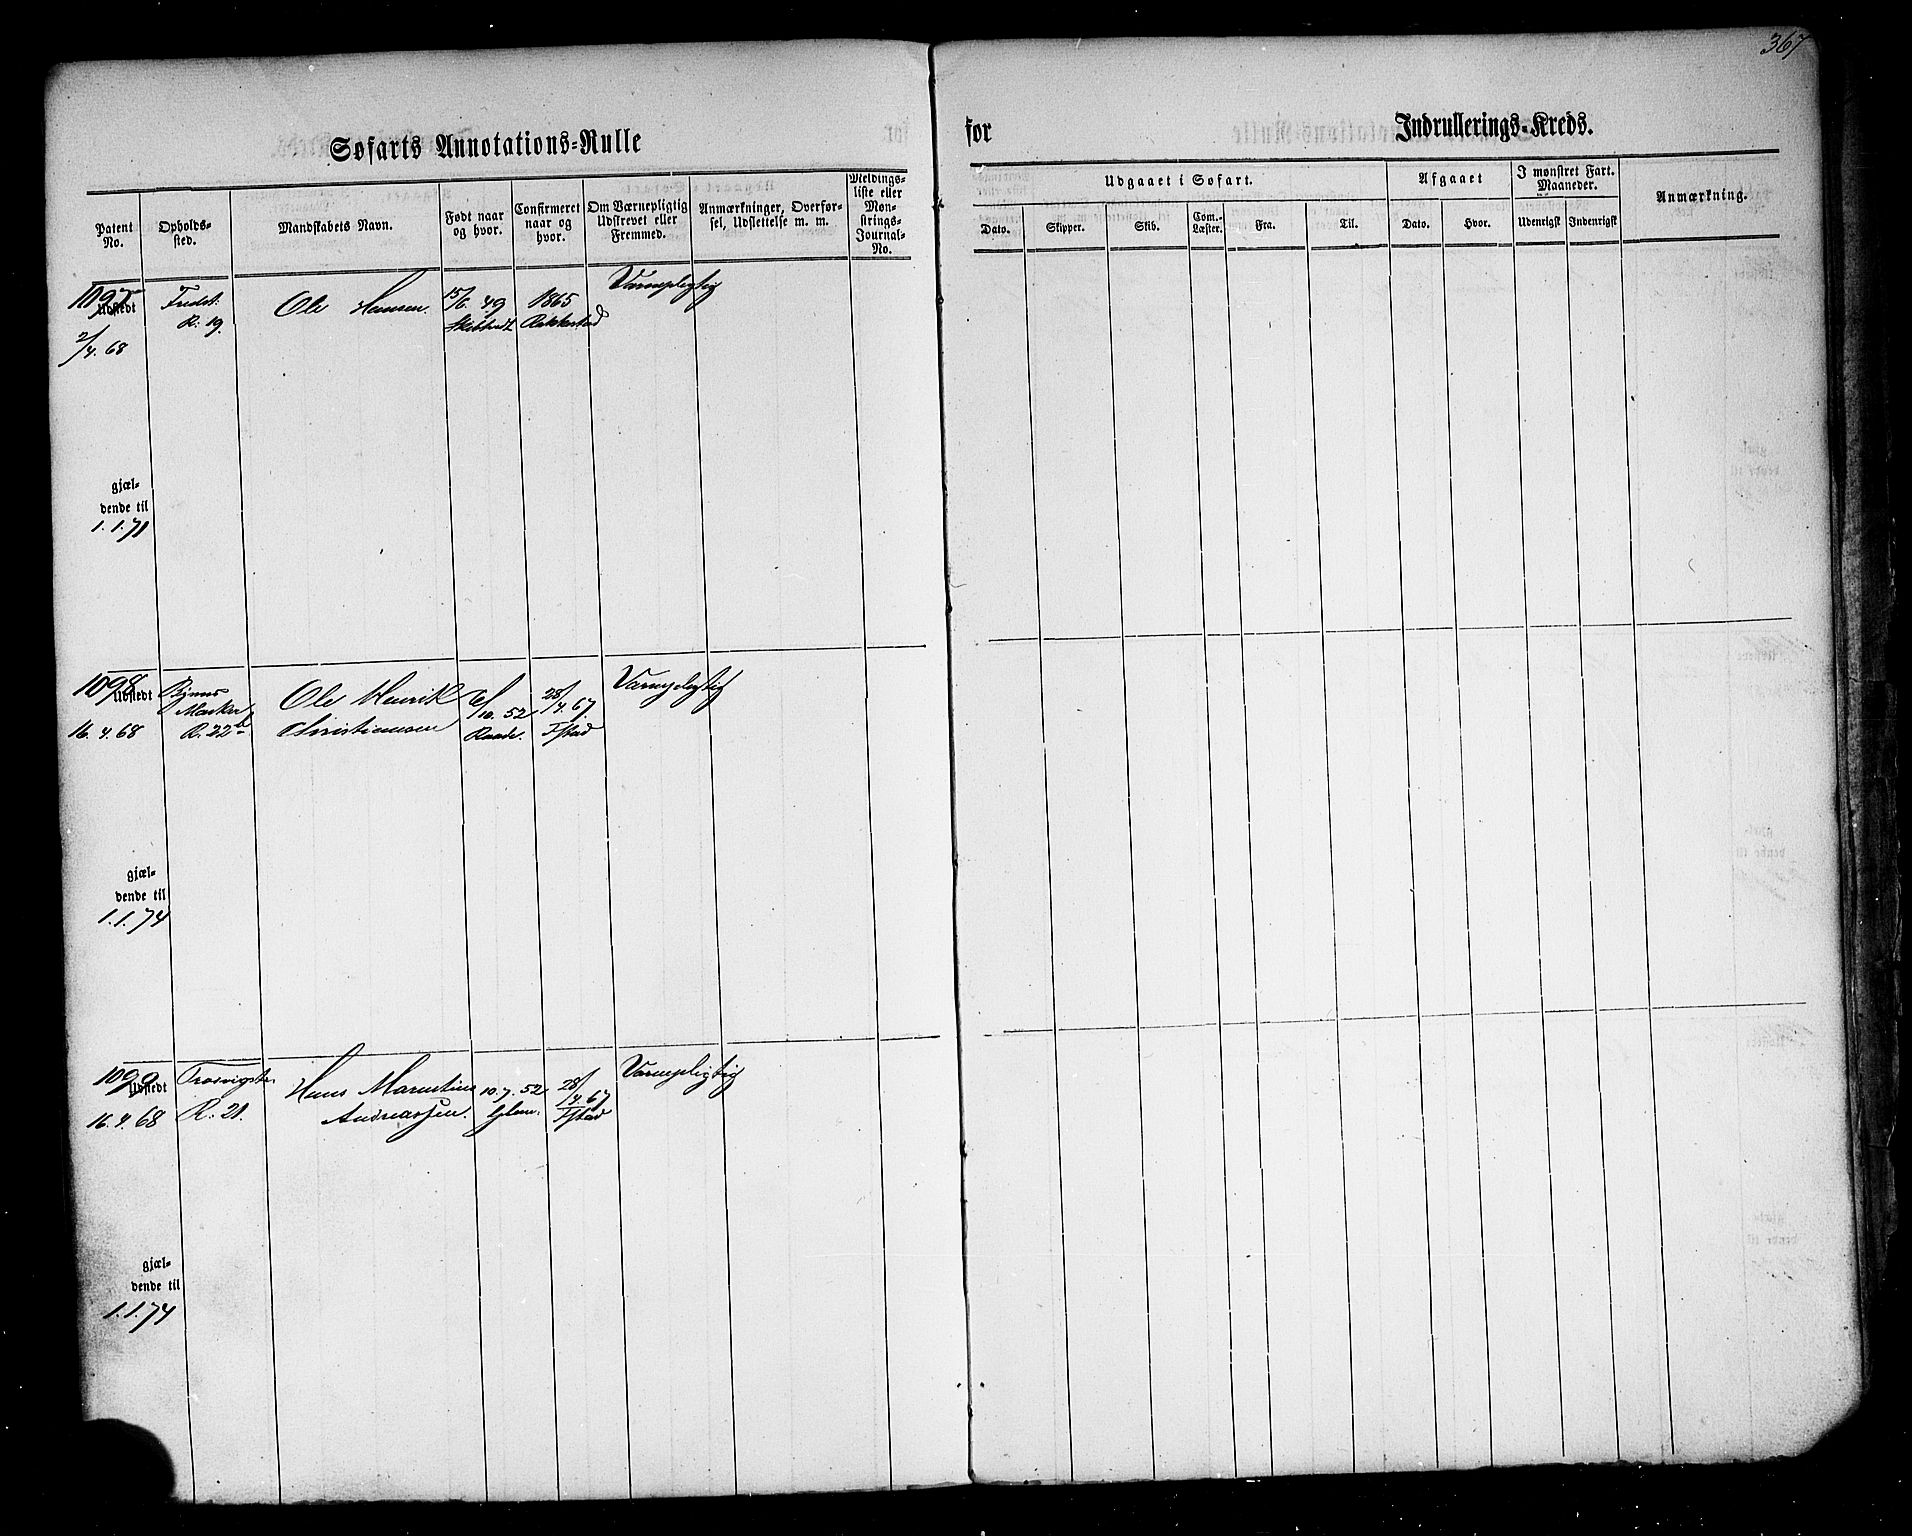 367
Søfarts Annotations-Rulle
for Indrullerings-Kreds.
Patent No.
Opholds-sted.
Mandskabets Navn.
Født naar og hvor.
Confirmeret naar og hvor.
Om Værnepligtig Udskrevet eller Fremmed.
Anmærkninger, Overfør-sel, Udslettelse m. m.
Meldings-liste eller Mønstrings-Journal-No.
Udgaaet i Søfart.
Dato. Skipper. Skib. Com.-Læster. Fra. Til.
Afgaaet
Dato. Hvor.
I mønstret Fart. Maaneder.
Udenrigst Indenrigst
Anmærkning.
1097 Fredst. Ole Hansen. 15/6. 49 1865 Værnepligtig
Udstedt R. 19. Rakkestad
2/4. 68
gjæl-
dende til
1. 1. 71
1098 Ole Henrik 6/10. 52 28/4. 67. Værnepligtig
Udstedt Marker
16. 4. 68 R. 22b Christiansen Raade. Fstad
gjæl-
dende til
1. 1. 74
1099 Trosvigstr. Hans Marentius 10. 7. 52 28/4. 67 Værnepligtig
Udstedt
16. 4. 68 R. 21. Andreassen. Glem. Fstad
gjæl-
dende til
1. 1. 74